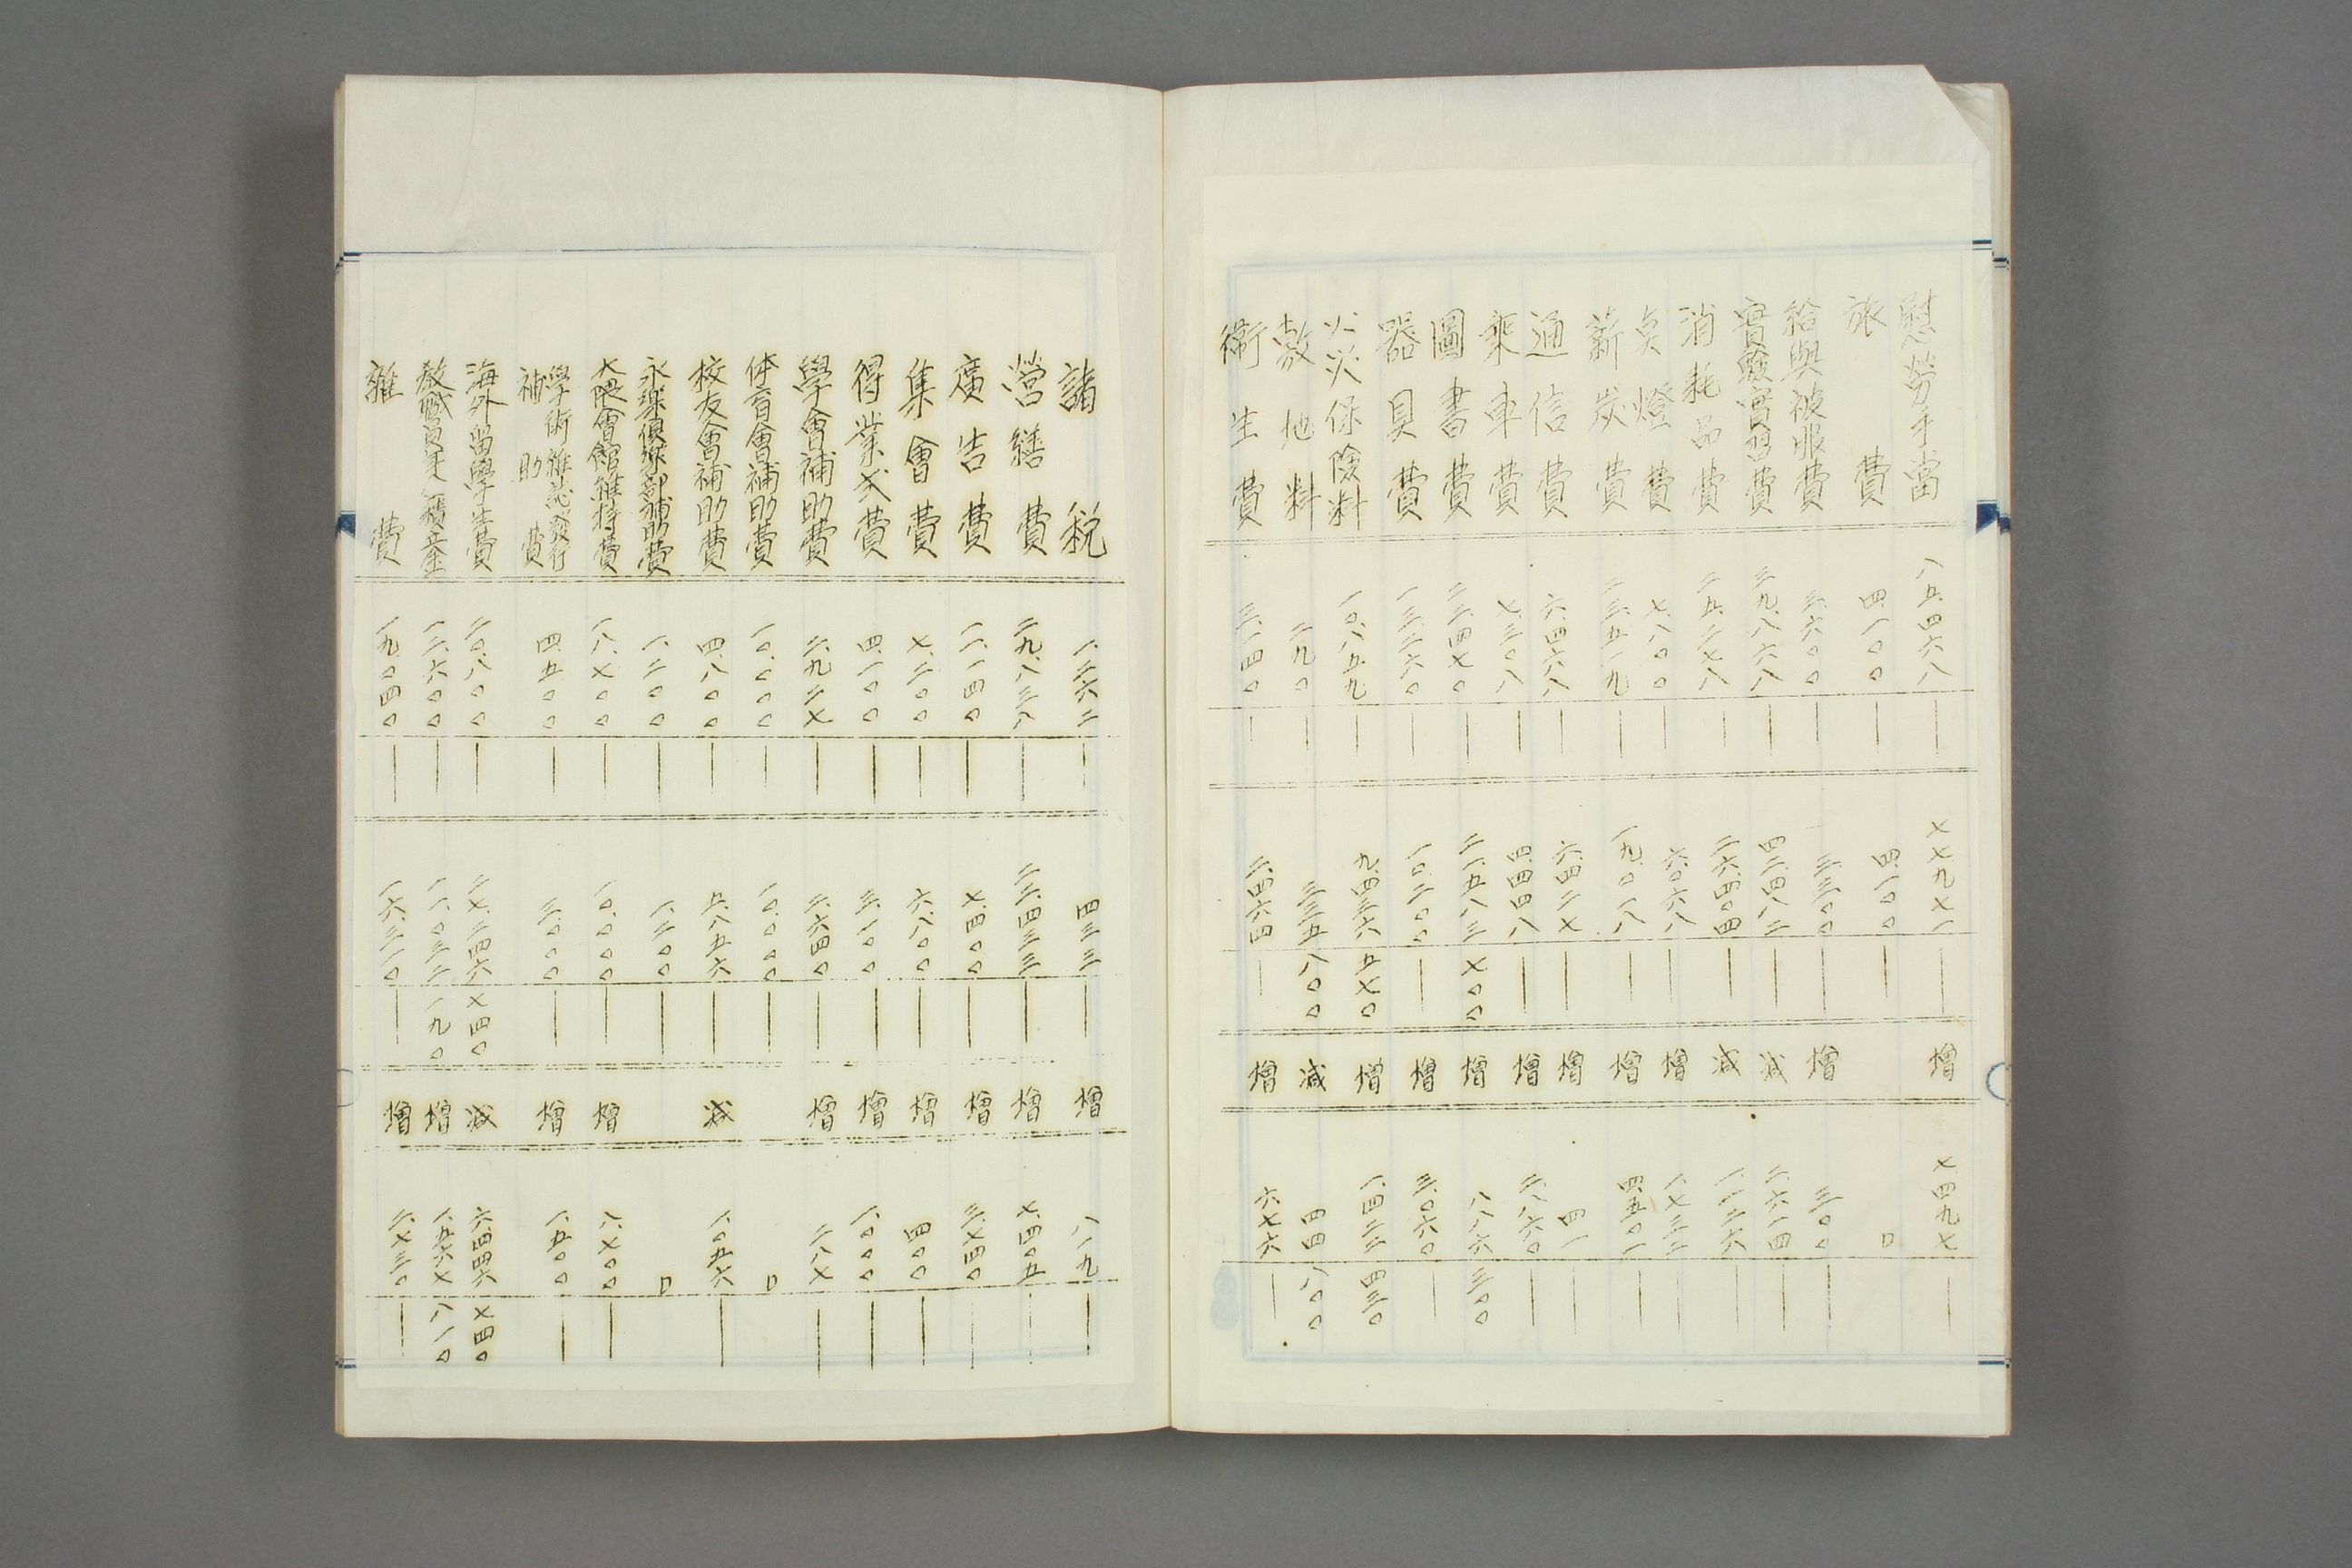 慰勞手當 八五、四六八 ― 七七、九七一 ― 增 七、四九七 ―
旅費 四、一〇〇 ― 四、一〇〇 ― 〇
給與被服費 三、六〇〇 ― 三、三〇〇 ― 增 三〇〇 ―
實驗實習費 三九、八六八 ― 四二、四八二 ― 減 二、六一四 ―
消耗品費 二五、二七八 ― 二六、四〇四 ― 減 一、一二六 ―
奌燈費 七、八〇〇 ― 六、〇六八 ― 增 一、七三二 ―
薪炭費 二三、五一九 ― 一九、〇一八 ― 增 四、五〇一 ―
通信費 六、四六八 ― 六、四二七 ― 增 四一 ―
乘車費 七、三〇八 ― 四、四四八 ― 增 二、八六〇 ―
圖書費 二二、四七〇 ― 二一、五八三 七〇〇 增 八八六 三〇〇
器具費 一三、二六〇 ― 一〇、二〇〇 ― 增 三、〇六〇 ―
火災保險料 一〇、八五九 ― 九、四三六 五七〇 增 一、四二二 四三〇
敷地料 二九〇 ― 三三五 八〇〇 減 四四 八〇〇
衛生費 三、一四〇 ― 二、四六四 ― 增 六七六 ―
諸税 一、二六二 ― 四三三 ― 增 八一九 ―
營繕費 二九、八三八 ― 二二、四三三 ― 增 七、四〇五 ―
廣告費 一一、一四〇 ― 七、四〇〇 ― 增 三、七四〇 ―
集會費 七、二〇〇 ― 六、八〇〇 ― 增 四〇〇 ―
得業式費 四、一〇〇 ― 三、一〇〇 ― 增 一、〇〇〇 ―
學會補助費 二、九二七 ― 二、六四〇 ― 增 二八七 ―
体育會補助費 一〇、〇〇〇 ― 一〇、〇〇〇 ― 〇
校友會補助費 四、八〇〇 ― 五、八五六 ― 減 一、〇五六 ―
永楽倶楽部補助費 一、二〇〇 ― 一、二〇〇 ― 〇
大隈會館維持費 一八、七〇〇 ― 一〇、〇〇〇 ― 增 八、七〇〇 ―
學術雜誌發行補助費 四、五〇〇 ― 三、〇〇〇 ― 增 一、五〇〇 ―
海外留學生費 二〇、八〇〇 ― 二七、二四六 七四〇 減 六、四四六 七四〇
教職員年金積立金 一二、六〇〇 ― 一一、〇三二 一九〇 增 一、五六七 八一〇
雜費 一九、〇四〇 ― 一六、三一〇 ― 增 二、七三〇 ―